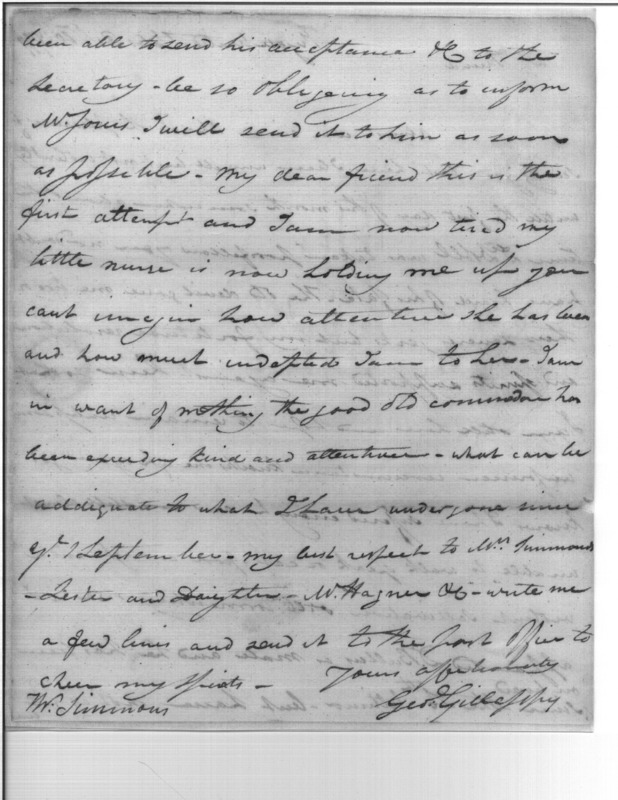 been able to send his acceptance &c to the
Secretary - be so obligeing as to inform
Mr. Jones I will send it to him as soon
as possable - my dear friend this is the
first attempt and I am now tired my
little nurse is now holding me up you
cant imagin how attentive she has been
and how much indepted I am to her - I am
in want of nothing the good old commodore has
been exceeding kind and attentive - what can be
addiquate to what I have undergone since
ye. 1 September - my best respect to Mrs. Simmons
- Sester and Daighter - Mr. Hagner &c - write me
a few lines and send it to the Post Office to
cheer my spirits - Yours affectionately
Wm. Simmons Geo. Gillasspy